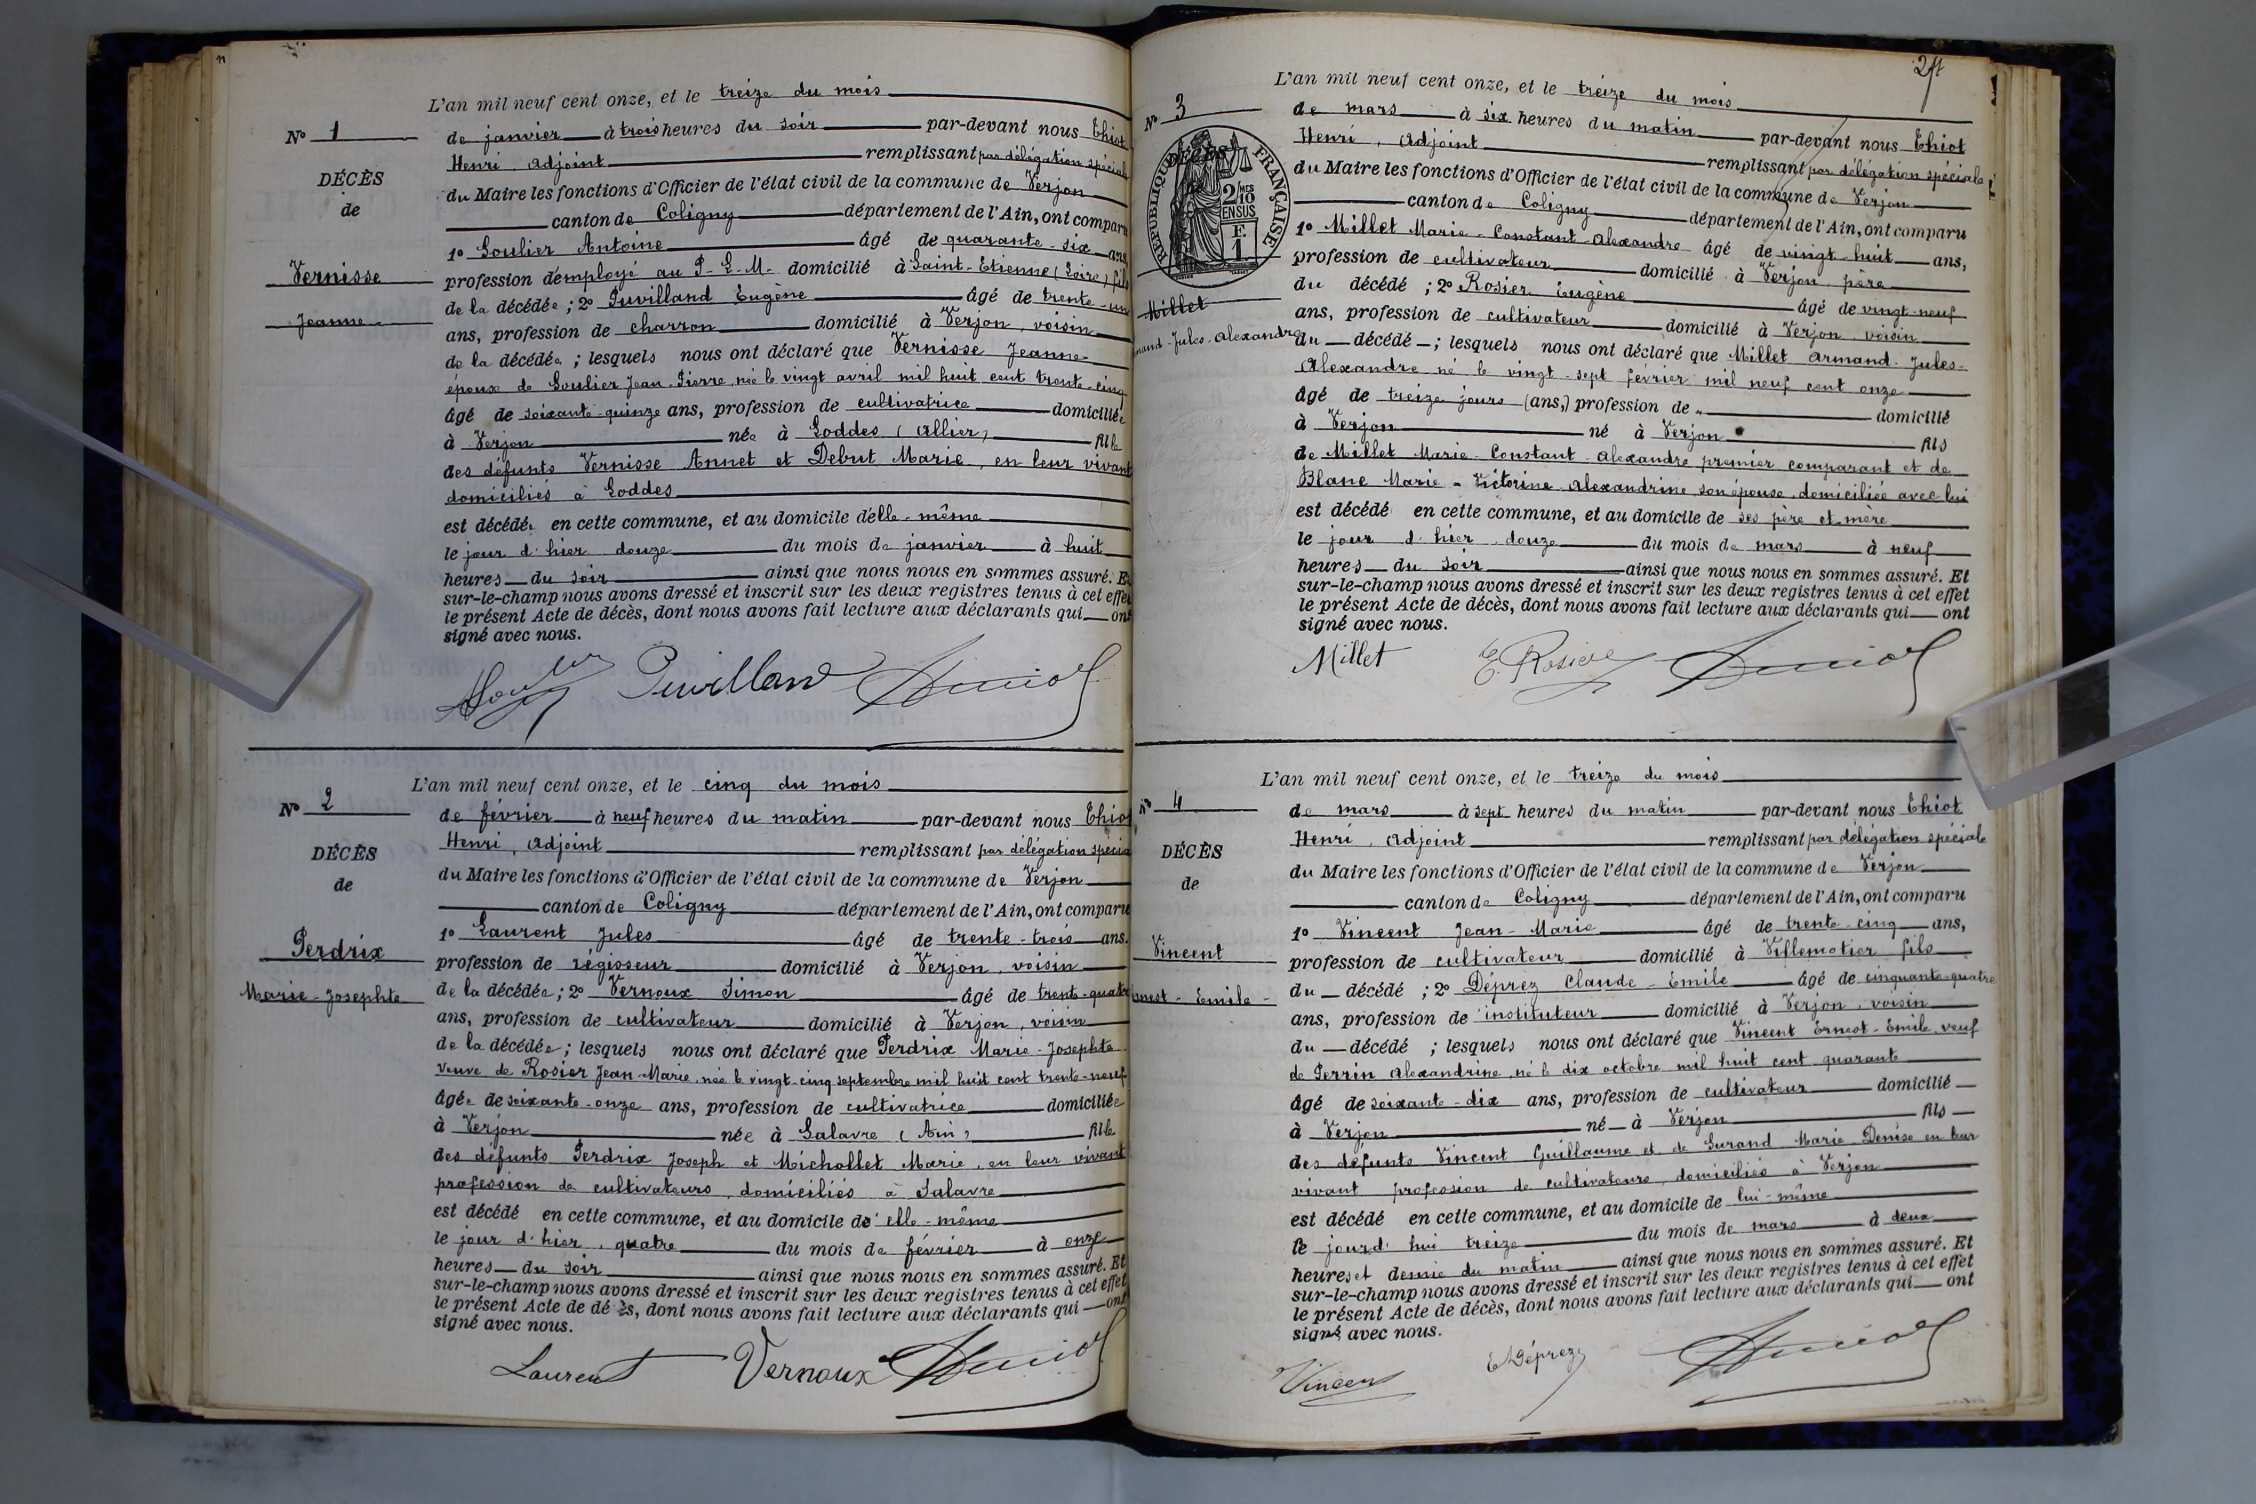 L'an mil neuf cent onze, et le treize du mois
Nº 1
de janvier à trois heures du soir par-devant nous Thiot
Henri, Adjoint remplissant par délégation spéciale
DÉCÈS
du Maire les fonctions d'Officier de l'état civil de la commune de Verjon
de
canton de Coligny département de l'Ain, ont comparu
1º Soulier Antoine âgé de quarante-six ans
Vernisse
profession d'employé au P-L-M- domicilié à Saint-Etienne (Loire) fils
de la décédée ; 2º Puvilland Eugène âgé de trente-un
Jeanne
ans, profession de charron domicilié à Verjon, voisin
de la décédée ; lesquels nous ont déclaré que Vernisse Jeanne
épouse de Soulier Jean-Pierre, née le vingt avril mil huit cent trente-cinq
âgé de soixante-quinze ans, profession de cultivatrice domiciliée
à Verjon née à Loddes (Allier) fille
des défunts Vernisse Annet et Debut Marie, en leur vivant
domiciliés à Loddes
est décédée en cette commune, et au domicile d'elle-même
le jour d'hier douze du mois de janvier à huit
heures du soir ainsi que nous nous en sommes assuré. Et
sur-le-champ nous avons dressé et inscrit sur les deux registres tenus à cet effet
le présent Acte de décès, dont nous avons fait lecture aux déclarants qui ont
signé avec nous.
Puvilland
L'an mil neuf cent onze, et le cinq du mois
Nº 2
de février à neuf heures du matin par-devant nous Thiot
Henri, Adjoint remplissant par délégation spéciale
DÉCÈS
du Maire les fonctions d'Officier de l'état civil de la commune de Verjon
de
canton de Coligny département de l'Ain, ont comparu
1º Laurent Jules âgé de trente-trois ans.
Perdrix
profession de régisseur domicilié à Verjon, voisin
Marie-Josephte
de la décédée ; 2º Vernoux Simon âgé de trente-quatre
ans, profession de cultivateur domicilié à Verjon, voisin
de la décédée ; lesquels nous ont déclaré que Perdrix Marie-Josephte
veuve de Rosier Jean-Marie, née le vingt-cinq septembre mil huit cent trente-neuf
âgée de soixante-onze ans, profession de cultivatrice domiciliée
à Verjon née à Salavre (Ain) fille
des défunts Perdrix Joseph et Michollet Marie, en leur vivant
profession de cultivateurs, domiciliés à Salavre
est décédé en cette commune, et au domicile d'elle-même
le jour d'hier, quatre du mois de février à onze
heures du soir ainsi que nous nous en sommes assuré. Et
sur-le-champ nous avons dressé et inscrit sur les deux registres tenus à cet effet
le présent Acte de décès, dont nous avons fait lecture aux déclarants qui ont
signé avec nous.
Laurent Vernoux
L'an mil neuf cent onze, et le treize du mois
Nº 3
de mars à six heures du matin par-devant nous Thiot
Henri, Adjoint remplissant par délégation spéciale
DÉCÈS
RÉPUBLIQUE FRANÇAISE
2 MES
10
EN SUS
F.
1
du Maire les fonctions d'Officier de l'état civil de la commune de Verjon
canton de Coligny département de l'Ain, ont comparu
1º Millet Marie-Constant-Alexandre âgé de vingt-huit ans,
profession de cultivateur domicilié à Verjon père
Millet
du décédé ; 2º Rosier Eugène âgé de vingt-neuf
mand-Jules-Alexandre
ans, profession de cultivateur domicilié à Verjon voisin
du décédé ; lesquels nous ont déclaré que Millet Armand-Jules-
Alexandre né le vingt-sept février mil neuf cent onze
âgé de treize jours (ans,) profession de " domicilié
à Verjon né à Verjon fils
de Millet Marie-Constant-Alexandre premier comparant et de
Blanc Marie-Victorine-Alexandrine, son épouse, domiciliée avec lui
est décédé en cette commune, et au domicile de ses père et mère
le jour d'hier, douze du mois de mars à neuf
heures du soir ainsi que nous nous en sommes assuré. Et
sur-le-champ nous avons dressé et inscrit sur les deux registres tenus à cet effet
le présent Acte de décès, dont nous avons fait lecture aux déclarants qui ont
signé avec nous.
Millet
L'an mil neuf cent onze, et le treize du mois
Nº 4
de mars à sept heures du matin par-devant nous Thiot
Henri, Adjoint remplissant par délégation spéciale
DÉCÈS
du Maire les fonctions d'Officier de l'état civil de la commune de Verjon
de
canton de Coligny département de l'Ain, ont comparu
1º Vincent Jean-Marie âgé de trente-cinq ans,
Vincent
profession de cultivateur domicilié à Villemotier fils
du décédé ; 2º Déprez Claude-Emile âgé de cinquante-quatre
rnest-Emile-
ans, profession de instituteur domicilié à Verjon, voisin
du décédé ; lesquels nous ont déclaré que Vincent Ernest-Emile, veuf
de Perrin Alexandrine, né le dix octobre mil huit cent quarante
âgé de soixante-dix ans, profession de cultivateur domicilié
à Verjon né à Verjon fils
des défunts Vincent Guillaume et de Gurand Marie Denise en leur
vivant profession de cultivateurs, domiciliés à Verjon
est décédé en cette commune, et au domicile de lui-même
le jour d'hui treize du mois de mars à deux
heures et demie du matin ainsi que nous nous en sommes assuré. Et
sur-le-champ nous avons dressé et inscrit sur les deux registres tenus à cet effet
le présent Acte de décès, dont nous avons fait lecture aux déclarants qui ont
signé avec nous.
Vincent Déprez